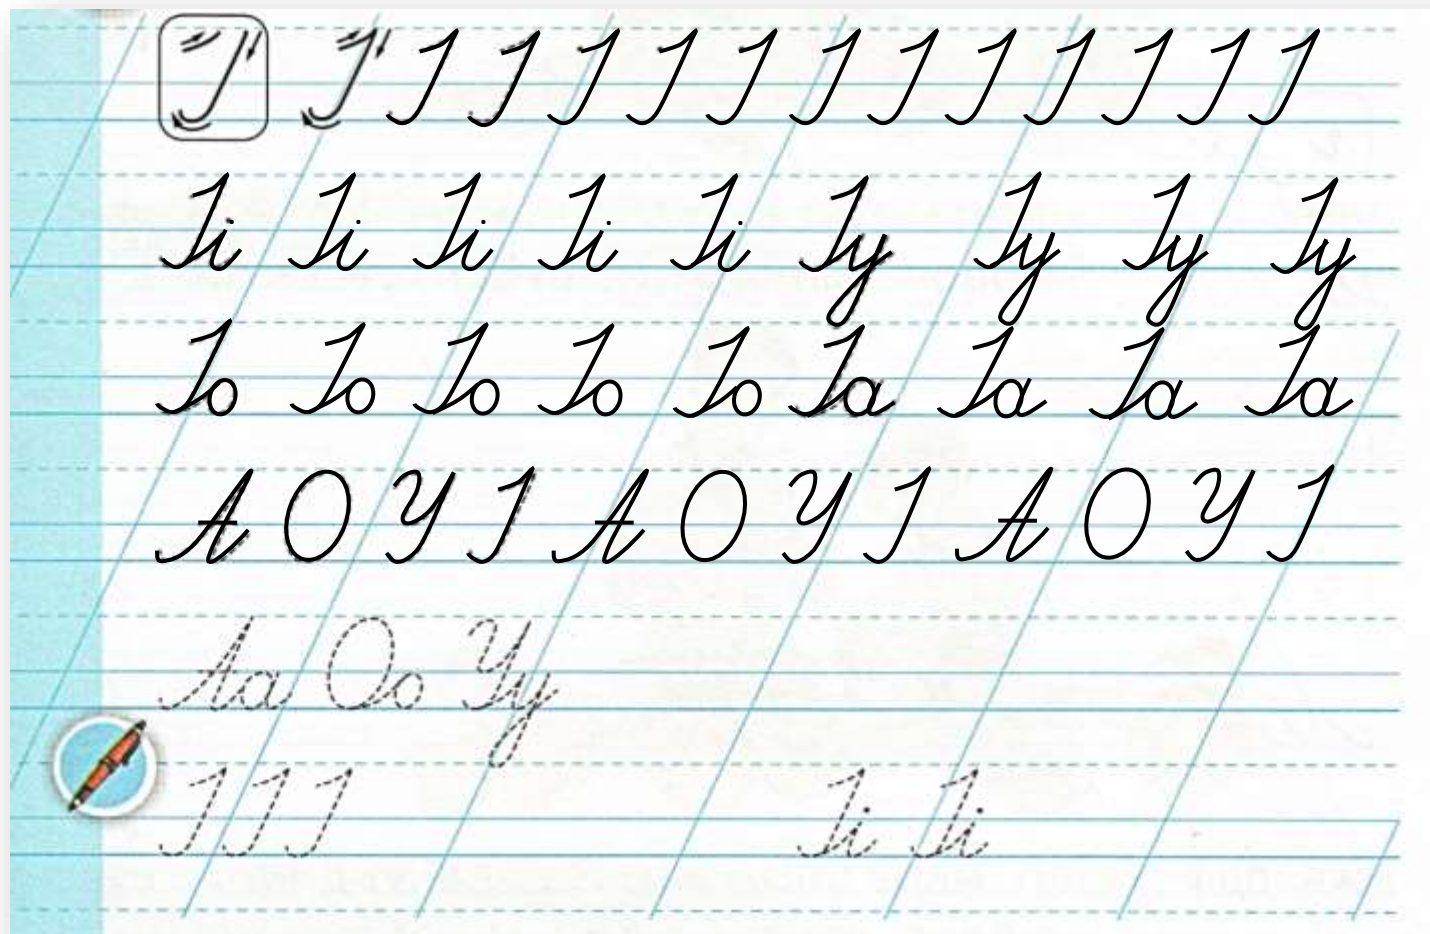 І І І І І І І І І І І І І І
Іі Іі Іі Іі Іі Іу Іу Іу Іу
Іо Іо Іо Іо Іо Іа Іа Іа Іа
А О У І А О У І А О У І
Аа Оо Уу
І І І Іі Іі